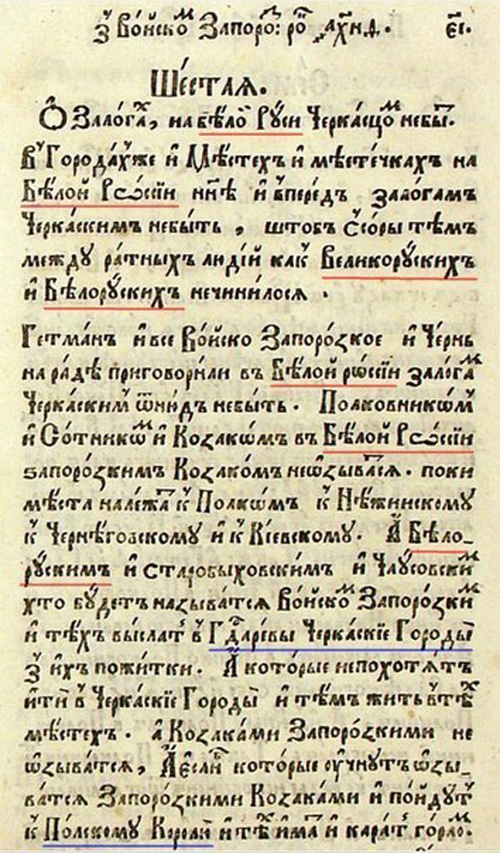 з̾ Во́йскоⷨ Запоро́: ро́ ахн҃д. є҃і.
Ше́стая.
Ѽ Залогаⷯ, на бѣлоⷤ Руси Черка́сцоⷨ небы́ⷮ.
В̾ Городаⷯже и҆ Мѣ́стехъ и҆ мѣсте́чкахъ на
Бѣ́лой Рѡсі́и нн҃ѣ и҆ впере́дъ залогамъ
Черка́сскимъ небы́ть , штобъ ссо́ры тѣ́мъ
между̀ ра́тныхъ люді́й ка́къ Великору́скихъ
и҆ Бѣлору́скихъ нечини́лося .
Гетма́нъ и҆ все Во́йско Запоро́зкое и҆ Че́рнь
на ра́дѣ приговори́ли въ Бѣ́лой рѡсі́и залогаⷨ
Черка́скимъ ѿню́дъ небы́ть . Полковникѡⷨ
и҆ Со́тникѡⷨ и҆ Козакѡ́мъ въ Бѣ́лой Рѡсі́и
запоро́зкимъ Козако́мъ неѡзыва́тⷭ҇я . поки
мѣста належа́ⷮ к̾ Полко́мъ к̾ Нѣ́жинскому
к̾ Чернѣ́говскому и҆ к̾ Кі́евскому . А҆ Бѣло_
ру́скимъ и҆ Старобыховскимъ и҆ Чау́совскиⷨ
хто бу́детъ называ́тся Во́йскоⷨ Запоро́зкиⷨ
и҆ тѣ́хъ высла́ть в̾ Гдⷭ҇аре́вы Черка́скіе Горо́ды
з̾ и҆́хъ пожи́тки . А҆ кото́рые непохотя́тъ
и҆ти̾ в̾ Черка́скіе Горо́ды и҆ тѣ́мъ жить в̾ тѣⷯ
мѣ́стехъ . а҆ Козака́ми Запоро́зкими не
ѡзыва́тся, А҆ е҆́сли кото́рые ᲂу҆чну́тъ ѡзы_
ва́тся Запоро́зкими Козака́ми и҆ по́йдутъ
к̾ По́лскому Королю̀ и҆ тѣⷯ и҆ма́ть и҆ кара́ть го́рлоⷨ.